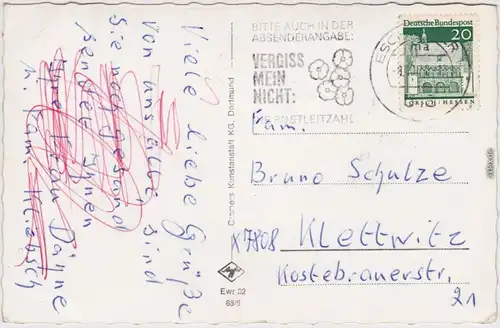 Viele liebe Grüße
von uns alle sind
Sie noch gesund
sendet Ihnen
Ihre Frau Dähne
u. Fam. Kliebsch
Cramers Kunstanstalt KG, Dortmund
BITTE AUCH IN DER
ABSENDERANGABE:
VERGISS
MEIN
NICHT:
POSTLEITZAHL
Deutsche Bundespost
20
LORSCH/HESSEN
Fam.
Bruno Schulze
X7808 Klettwitz
Kostebrauerstr.
21
Ewr 32
68/6